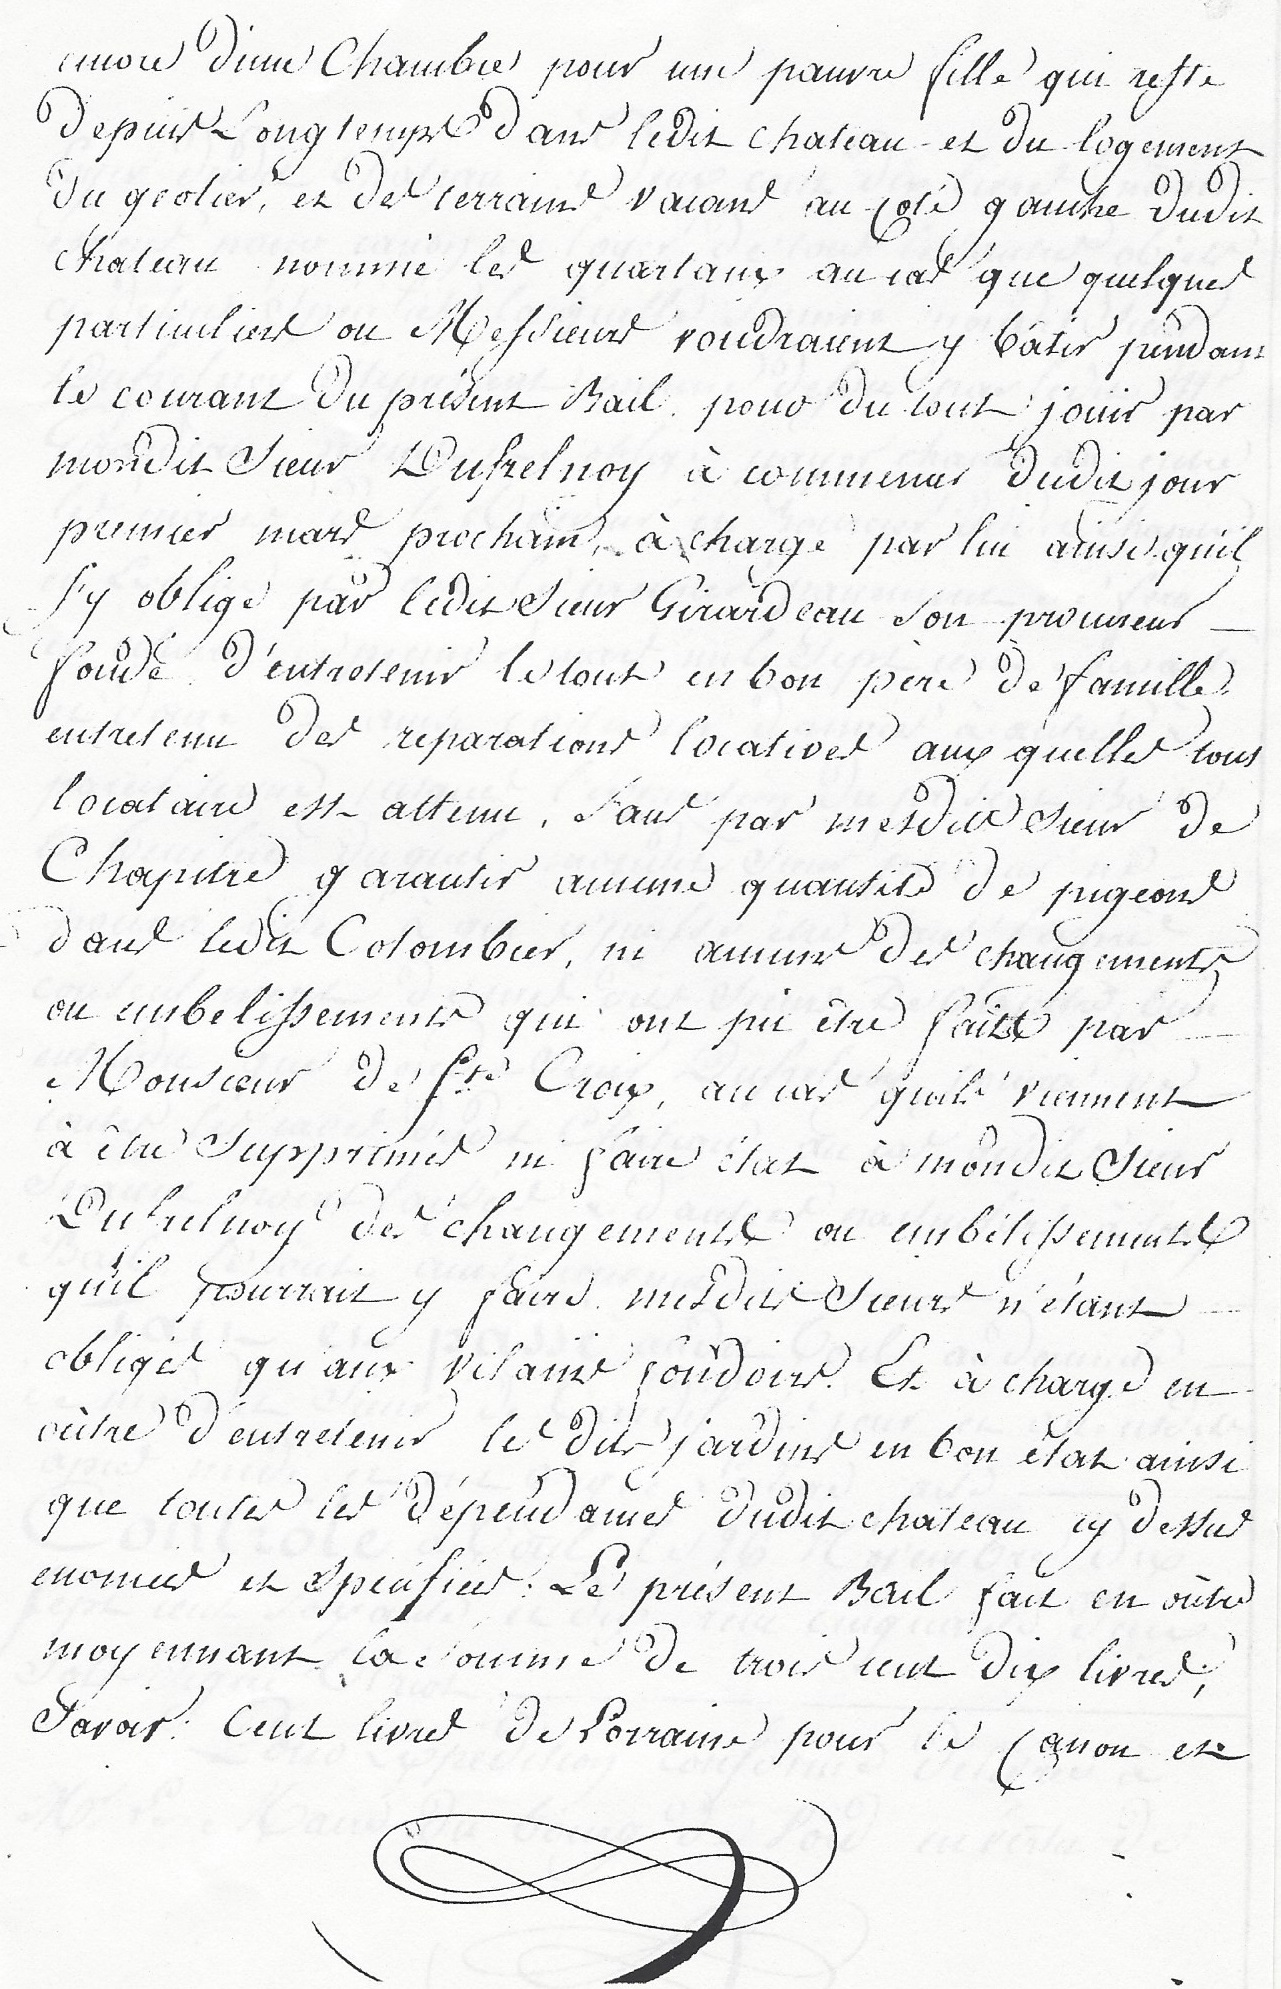 encore d'une Chambre pour une pauvre fille qui reste
depuis Longtemps dans ledit chateau et du logement
du geolier, et des terrains vacans au coté gauche dudit
chateau nommé les quartaux au cas que quelques
particuliers ou Messieurs voudraient y bâtir pendant
le courant du présent Bail. pour du tout jouir par
mondit Sieur Dufresnoy à commencer dudit jour
premier mars prochain, à charge par lui ainsi qu'il
s'y oblige par ledit Sieur Girardeau son procureur
fondé d'entretenir le tout en bon père de famille
entretenu des reparations locatives aux quelles tous
locataire est attenu, sans par mesdits Sieur de
Chapitre garantir aucune quantité de pigeons
dans ledit Colombier, ni aucuns des changements
ou embelissements qui ont pu être faits par
Monsieur de Ste Croix, au cas qu'ils viennent
à être supprimés ni faire état à mondit Sieur
Dufresnoy des changements ou embélissements
qu'il pourrait y faire. mesdits Sieurs n'étant
obligés qu'aux vilains fondoirs. Et à charge en
oûtre d'entretenir les dits jardins en bon état ainsi
que toutes les dépendances dudit chateau cy dessus
enoncées et spécifiées. Le présent Bail fait en oûtre
moyennant la somme de trois cent dix livres,
Savoir: Cent livres de Lorraine pour le Canon et